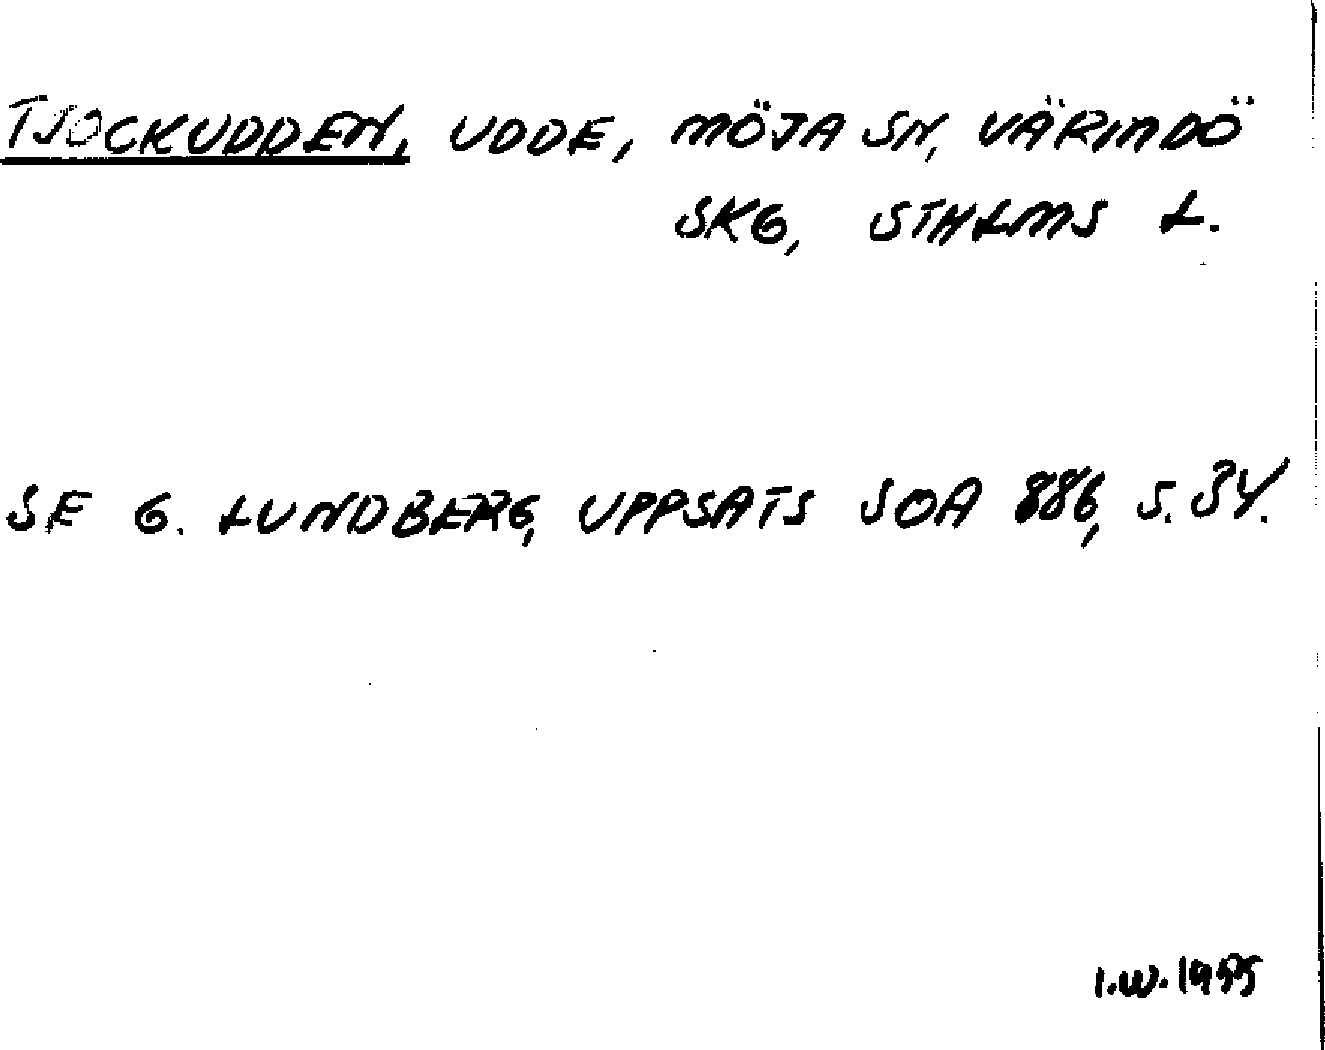 TJOCKUDDEN, UDDE, MÖJA SN, VÄRMDÖ
SKG, STHLMS L.
SE G. LUNDBERG, UPPSATS SOA 886, S. 34.
I.W. 1955